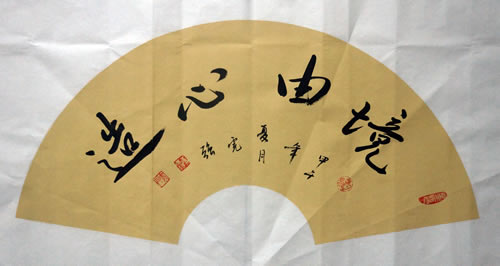 境由心造
甲午年夏月